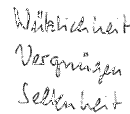 Nützlichkeit
Vergnügen
Seltenheit